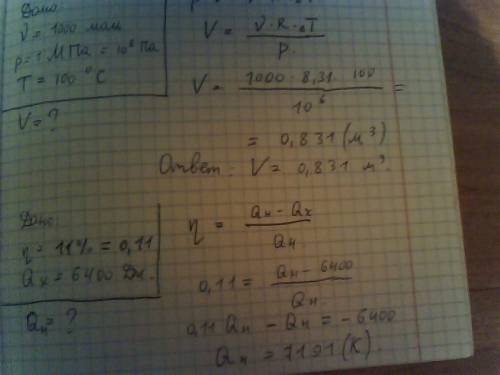 Дано:
ν = 1000 моль
p = 1 МПа = 10⁶ Па
T = 100 °C
V = ?
V = ν · R · T / p.
V = 1000 · 8,31 · 100 / 10⁶ =
= 0,831 (м³)
Ответ: V = 0,831 м³.
Дано:
η = 11% = 0,11
Qx = 6400 Дж.
Qн = ?
η = Qн - Qx / Qн
0,11 = Qн - 6400 / Qн
0,11 Qн - Qн = - 6400
Qн = 7191 (К).